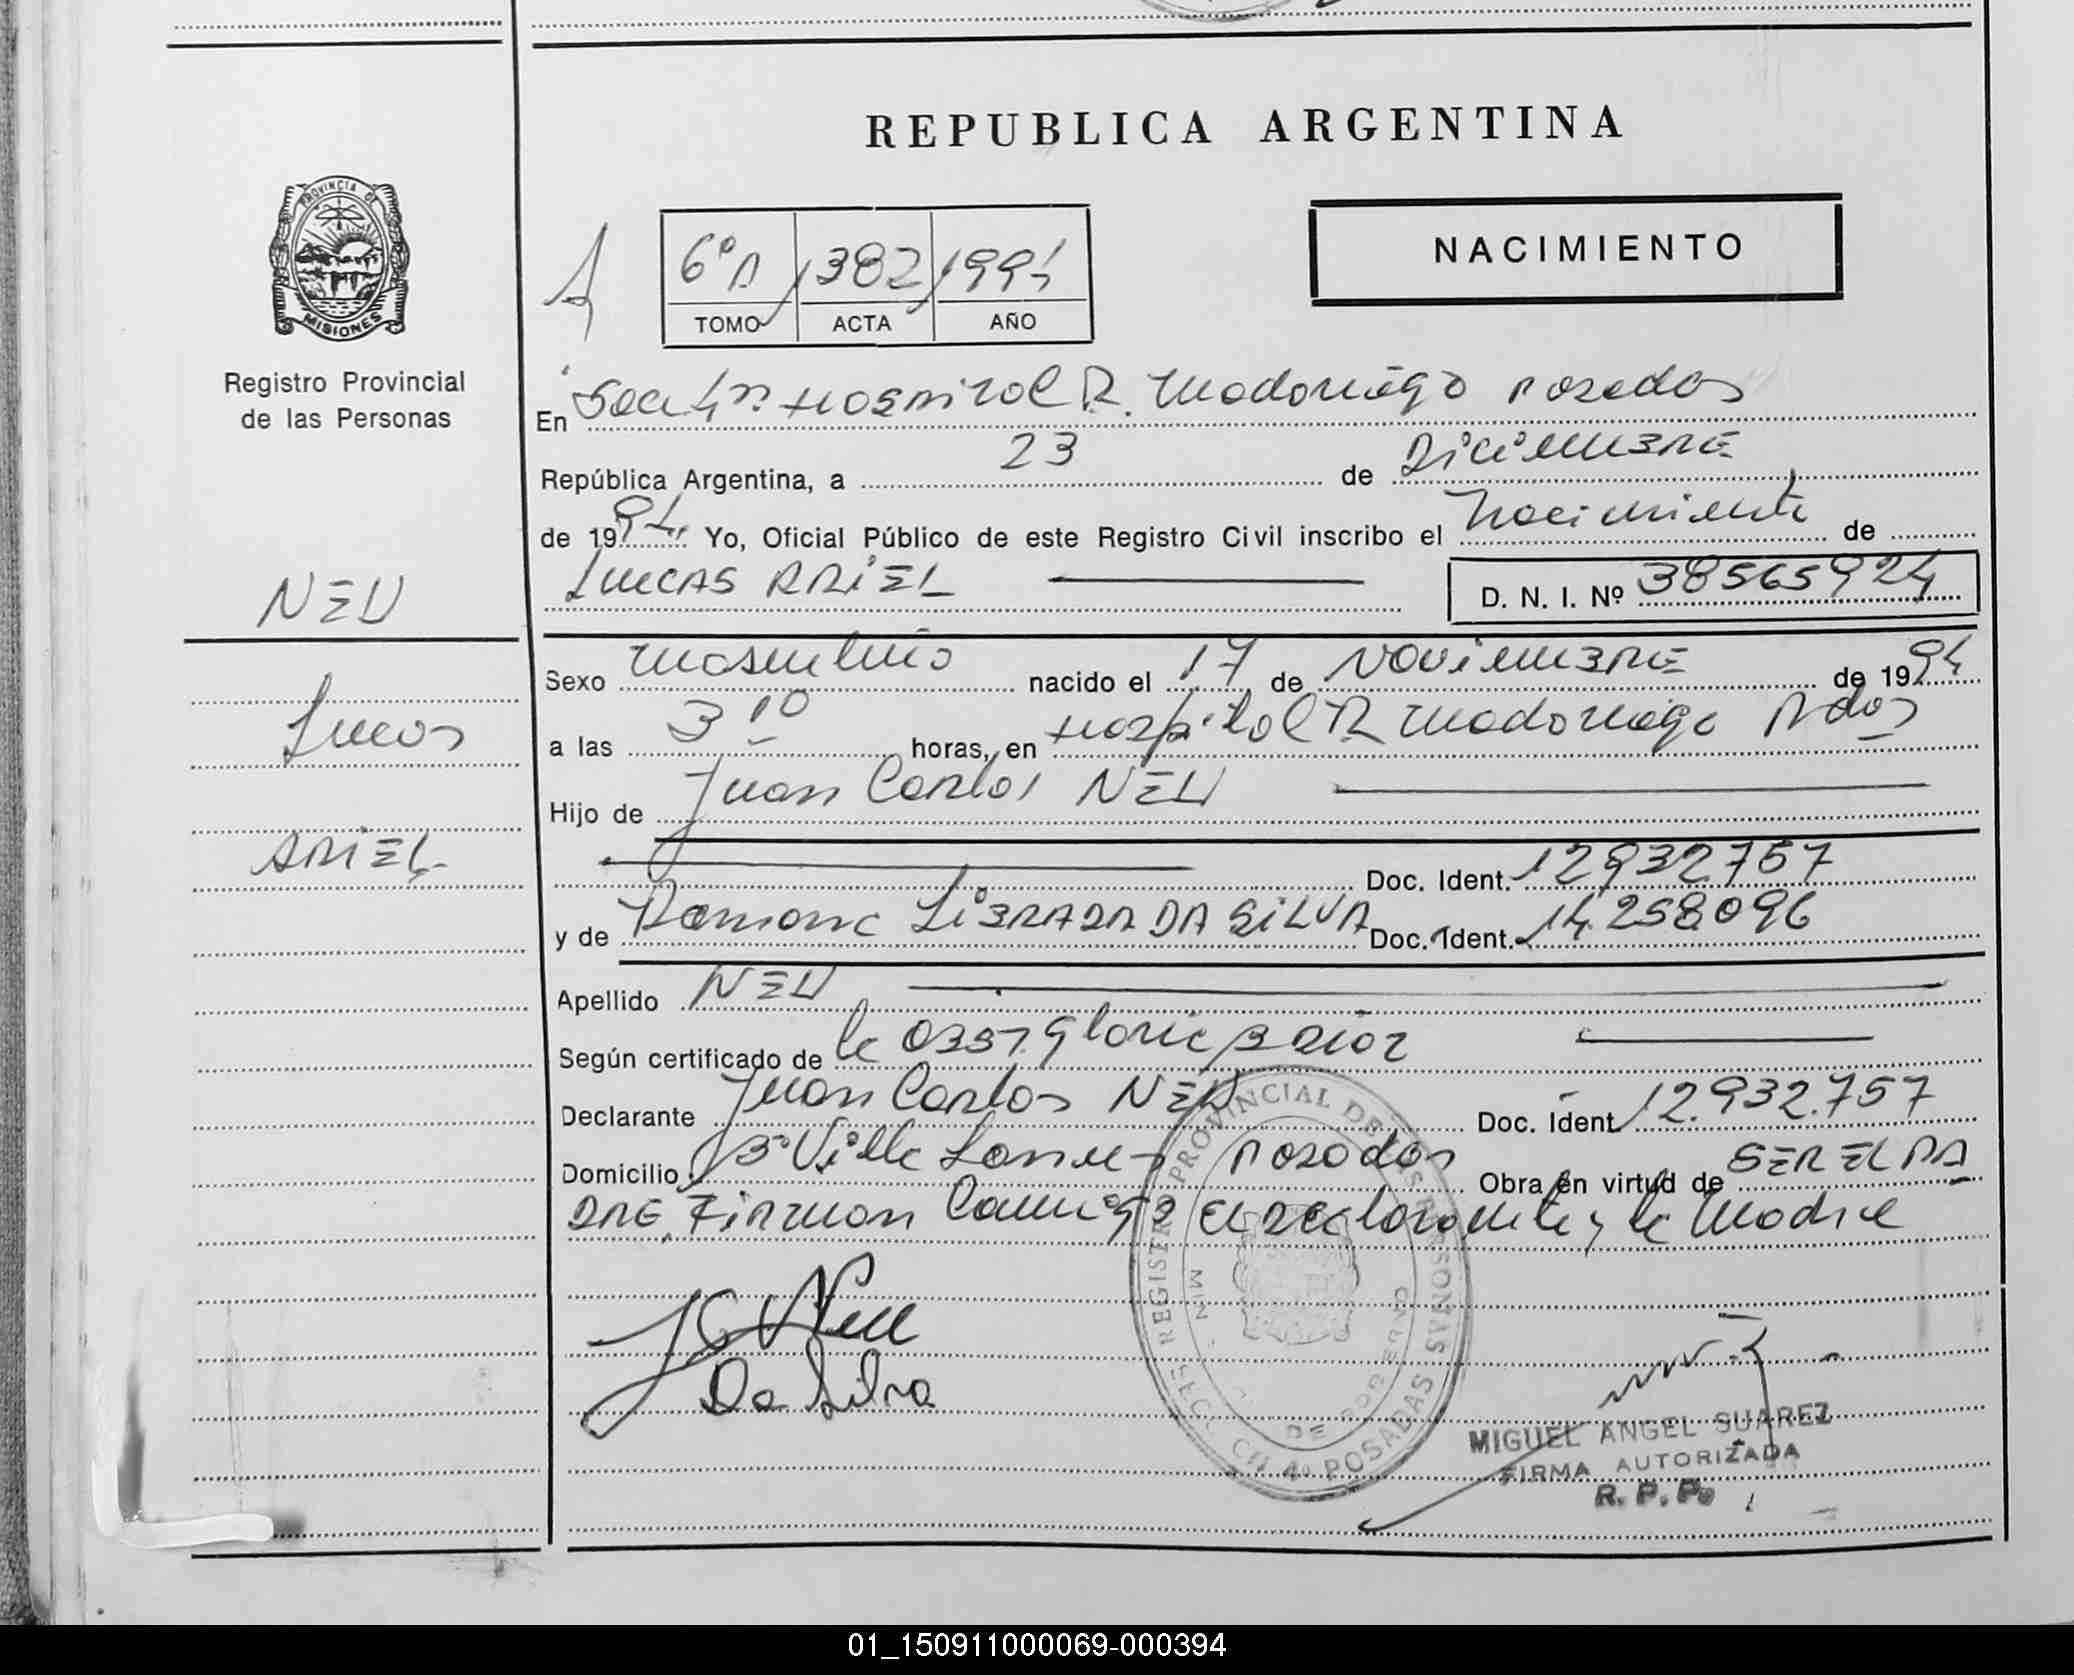 REPUBLICA ARGENTINA
PROVINCIA DE
MISIONES
Registro Provincial
de las Personas
NACIMIENTO
6º A 1382 1994
TOMO ACTA AÑO
En Secc 4ª Hospital R. Madariaga Posadas
República Argentina, a 23 de Diciembre
de 1994 Yo, Oficial Público de este Registro Civil inscribo el Nacimiento de
LUCAS ARIEL D. N. I. Nº 38565924
NEU
Lucas
ARIEL
Sexo masculino nacido el 17 de NOVIEMBRE de 1994
a las 3 10 horas, en Hospital R Madariaga Pdas
Hijo de Juan Carlos NEU
Doc. Ident. 12932757
y de Ramona LIBRADA DA SILVA Doc. Ident. 14.258.096
Apellido NEU
Según certificado de la Obst. Gloria
Declarante Juan Carlos NEU Doc. Ident 12.932.757
Domicilio Bº Villa Lanus Posadas Obra en virtud de SER EL PA
DRE, Firman Conmigo el declarante y la Madre
JC Neu
Da Silva
REGISTRO PROVINCIAL DE LAS PERSONAS
MIN DE GOBIERNO
SECC. 4ª POSADAS
MIGUEL ANGEL SUAREZ
FIRMA AUTORIZADA
R. P. P.
01_150911000069-000394